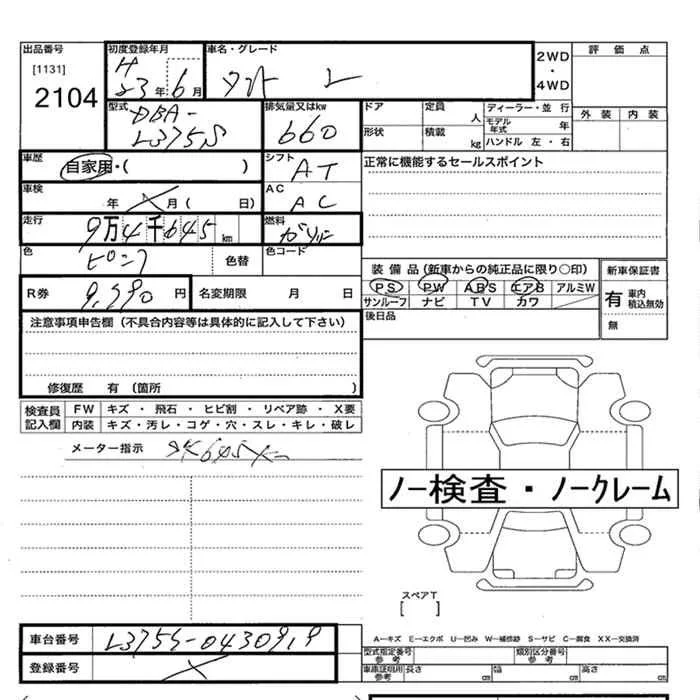 出品番号 初度登録年月 車名・グレード 2WD・4WD 評価点
[1131] H
2104 23年6月 タント L
外装 内装
型式 排気量又はkw ドア 定員 人 ディーラー・並行
DBA- モデル年式 年
L375S 660 形状 積載 kg ハンドル 左・右
車歴 自家用・( ) シフト AT 正常に機能するセールスポイント
車検 年 月( 日) AC AC
走行 9万4千645km 燃料 ガソリン
色 ピンク 色替 色コード
装備品(新車からの純正品に限り○印) 新車保証書
PS PW ABS エアB アルミW 有 車内積込無効
サンルーフ ナビ TV カワ 無
R券 9,990円 名変期限 月 日
後日品
注意事項申告欄(不具合内容等は具体的に記入して下さい)
修復歴 有(箇所 )
検査員記入欄 FW キズ・飛石・ヒビ割・リペア跡・X要
内装 キズ・汚レ・コゲ・穴・スレ・キレ・破レ
メーター指示
ノー検査・ノークレーム
スペアT
[ ]
車台番号 L375S-0430919
登録番号
A-キズ E-エクボ U-凹み W-補修跡 S-サビ C-腐食 XX-交換済
型式指定番号 参考 類別区分番号 参考
車庫証明用 参考 長さ cm 幅 cm 高さ cm